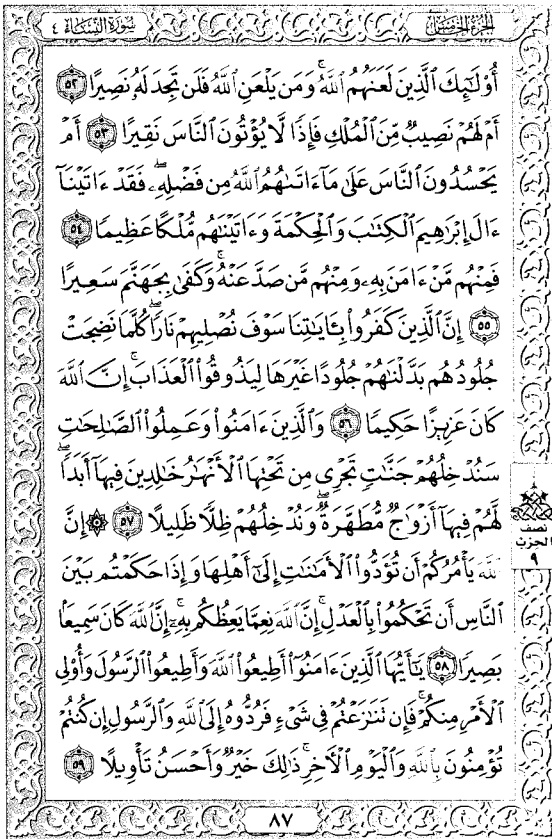 الجزء الخامس
سورة النساء ٤
أُوْلَٰٓئِكَ ٱلَّذِينَ لَعَنَهُمُ ٱللَّهُۖ وَمَن يَلْعَنِ ٱللَّهُ فَلَن تَجِدَ لَهُۥ نَصِيرًا ٥٢
أَمْ لَهُمْ نَصِيبٌ مِّنَ ٱلْمُلْكِ فَإِذًا لَّا يُؤْتُونَ ٱلنَّاسَ نَقِيرًا ٥٣ أَمْ
يَحْسُدُونَ ٱلنَّاسَ عَلَىٰ مَآ ءَاتَىٰهُمُ ٱللَّهُ مِن فَضْلِهِۦۖ فَقَدْ ءَاتَيْنَآ
ءَالَ إِبْرَٰهِيمَ ٱلْكِتَٰبَ وَٱلْحِكْمَةَ وَءَاتَيْنَٰهُم مُّلْكًا عَظِيمًا ٥٤
فَمِنْهُم مَّنْ ءَامَنَ بِهِۦ وَمِنْهُم مَّن صَدَّ عَنْهُۚ وَكَفَىٰ بِجَهَنَّمَ سَعِيرًا
٥٥ إِنَّ ٱلَّذِينَ كَفَرُوا۟ بِـَٔايَٰتِنَا سَوْفَ نُصْلِيهِمْ نَارًا كُلَّمَا نَضِجَتْ
جُلُودُهُم بَدَّلْنَٰهُمْ جُلُودًا غَيْرَهَا لِيَذُوقُوا۟ ٱلْعَذَابَۗ إِنَّ ٱللَّهَ
كَانَ عَزِيزًا حَكِيمًا ٥٦ وَٱلَّذِينَ ءَامَنُوا۟ وَعَمِلُوا۟ ٱلصَّٰلِحَٰتِ
سَنُدْخِلُهُمْ جَنَّٰتٍ تَجْرِى مِن تَحْتِهَا ٱلْأَنْهَٰرُ خَٰلِدِينَ فِيهَآ أَبَدًاۖ
لَّهُمْ فِيهَآ أَزْوَٰجٌ مُّطَهَّرَةٌۖ وَنُدْخِلُهُمْ ظِلًّا ظَلِيلًا ٥٧ ۞ إِنَّ
ٱللَّهَ يَأْمُرُكُمْ أَن تُؤَدُّوا۟ ٱلْأَمَٰنَٰتِ إِلَىٰٓ أَهْلِهَا وَإِذَا حَكَمْتُم بَيْنَ
ٱلنَّاسِ أَن تَحْكُمُوا۟ بِٱلْعَدْلِۚ إِنَّ ٱللَّهَ نِعِمَّا يَعِظُكُم بِهِۦٓۗ إِنَّ ٱللَّهَ كَانَ سَمِيعًۢا
بَصِيرًا ٥٨ يَٰٓأَيُّهَا ٱلَّذِينَ ءَامَنُوٓا۟ أَطِيعُوا۟ ٱللَّهَ وَأَطِيعُوا۟ ٱلرَّسُولَ وَأُو۟لِى
ٱلْأَمْرِ مِنكُمْۖ فَإِن تَنَٰزَعْتُمْ فِى شَىْءٍ فَرُدُّوهُ إِلَى ٱللَّهِ وَٱلرَّسُولِ إِن كُنتُمْ
تُؤْمِنُونَ بِٱللَّهِ وَٱلْيَوْمِ ٱلْءَاخِرِۚ ذَٰلِكَ خَيْرٌ وَأَحْسَنُ تَأْوِيلًا ٥٩
نصف
الحزب
٩
٨٧